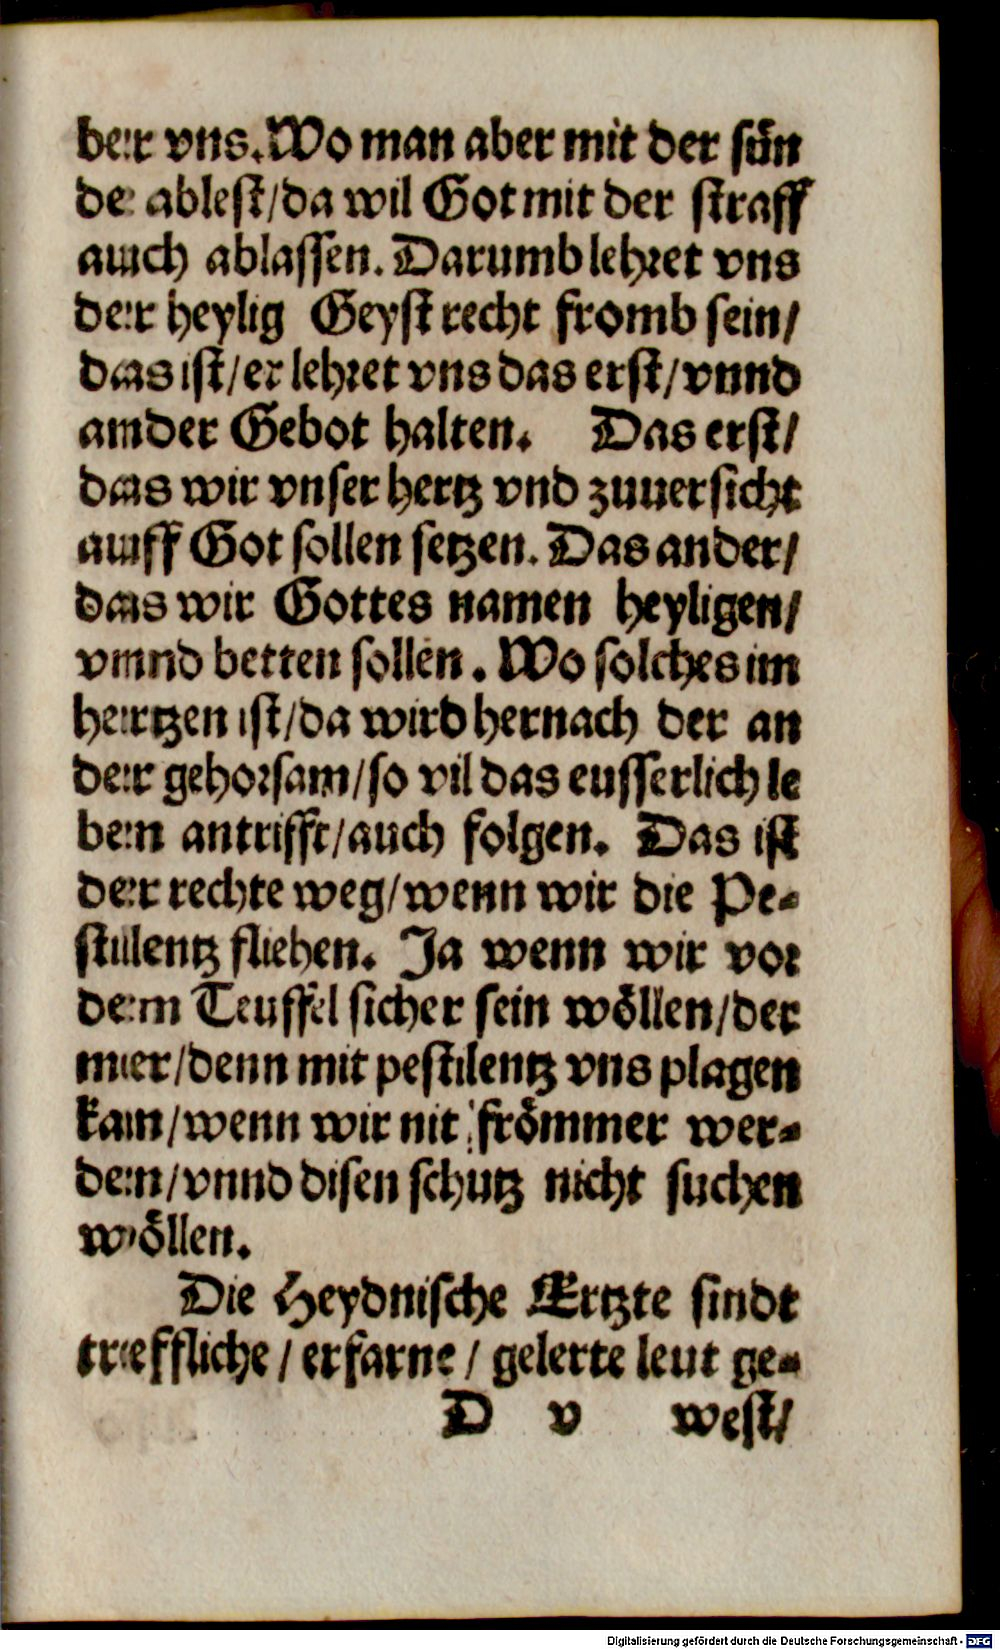 ber vns. Wo man aber mit der sün
de ablest/da wil Got mit der straff
auch ablassen. Darumb lehret vns
der heylig Geyst recht fromb sein/
das ist/er lehret vns das erst/vnnd
ander Gebot halten. Das erst/
das wir vnser hertz vnd zuuersicht
auff Got sollen setzen. Das ander/
das wir Gottes namen heyligen/
vnnd betten sollen. Wo solches im
hertzen ist/da wird hernach der an
der gehorsam/so vil das eusserlich le
ben antrifft/auch folgen. Das ist
der rechte weg/wenn wir die Pe-
stilentz fliehen. Ja wenn wir vor
dem Teuffel sicher sein wöllen/der
mier/denn mit pestilentz vns plagen
kan/wenn wir nit frömmer wer-
den/vnnd disen schutz nicht suchen
wöllen.
Die Heydnische Ertzte sindt
treffliche/erfarne/gelerte leut ge-
D v west/
Digitalisierung gefördert durch die Deutsche Forschungsgemeinschaft - DFG